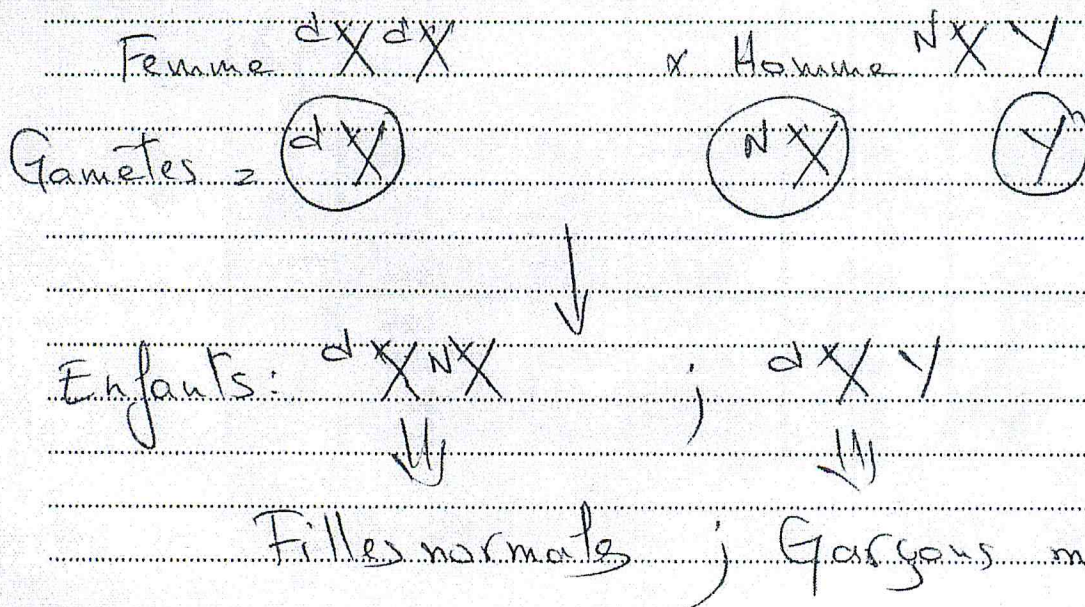 Femme dX dX x Homme NX Y
Gamètes = dX NX Y
Enfants: dX NX ; dX Y
Filles normales ; Garçons m